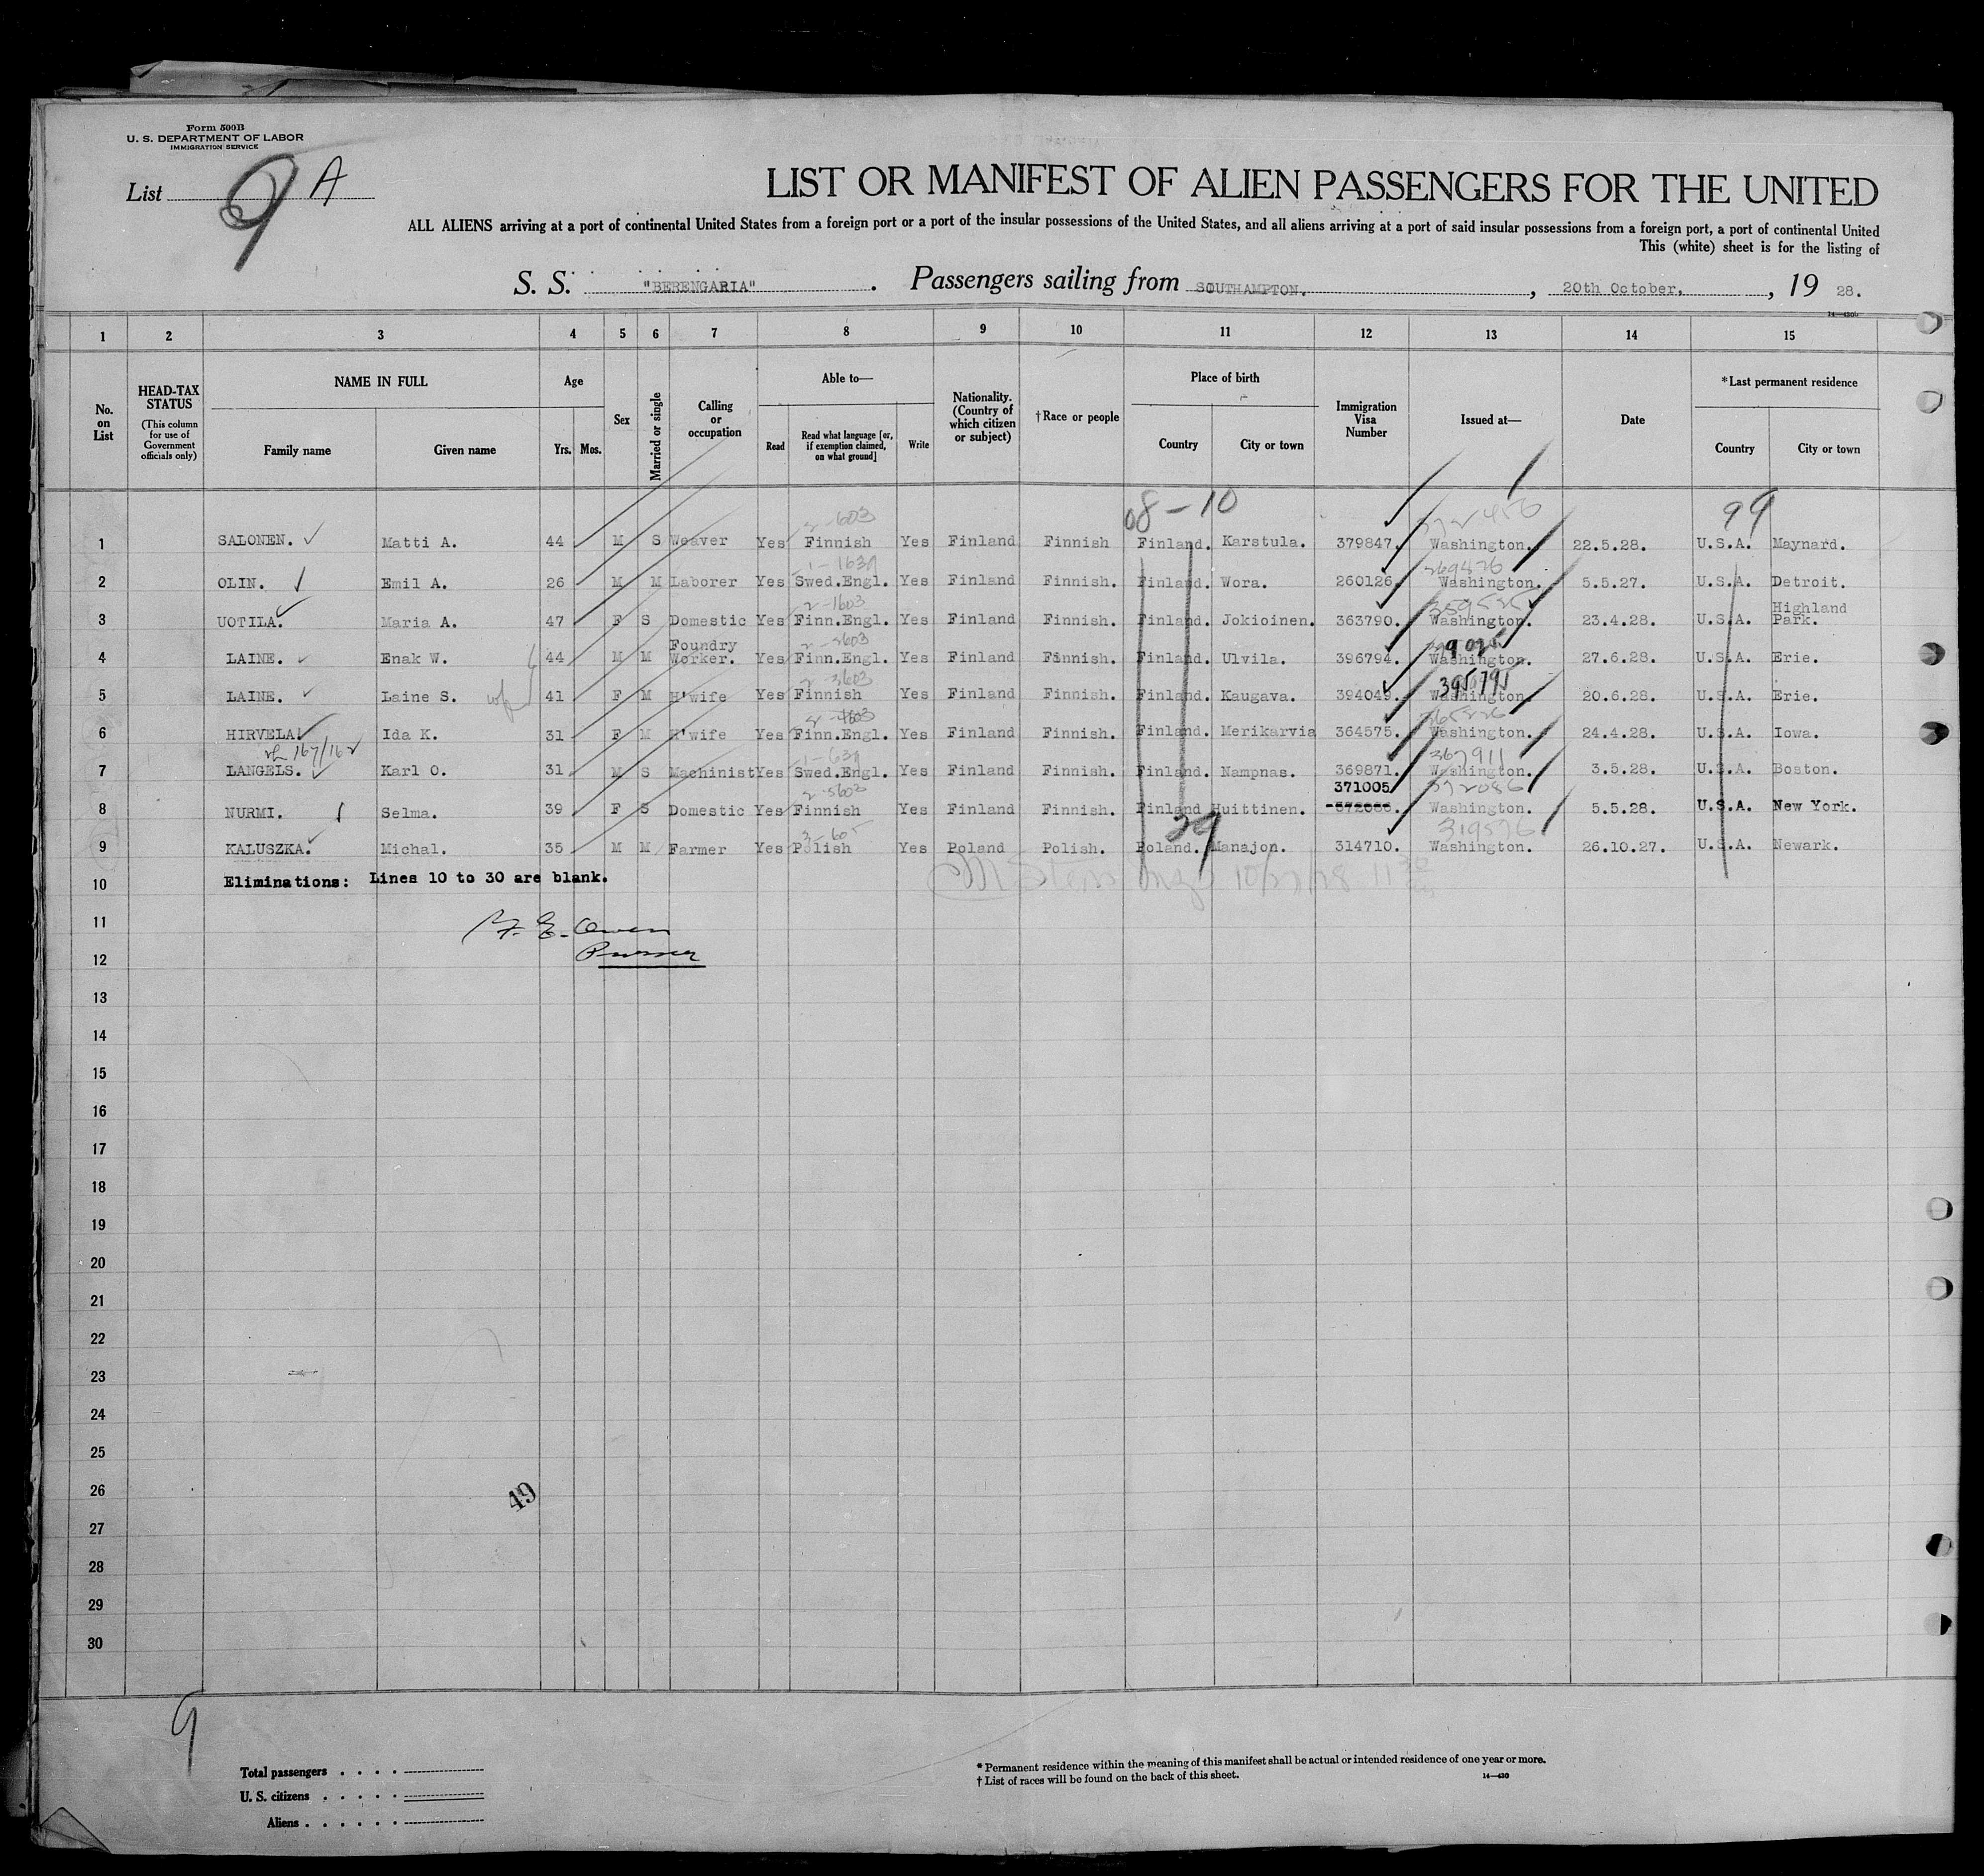 Form 500B
U. S. DEPARTMENT OF LABOR
IMMIGRATION SERVICE
List 9 A
LIST OR MANIFEST OF ALIEN PASSENGERS FOR THE UNITED
ALL ALIENS arriving at a port of continental United States from a foreign port or a port of the insular possessions of the United States, and all aliens arriving at a port of said insular possessions from a foreign port, a port of continental United
This (white) sheet is for the listing of
S. S. "BERENGARIA" . Passengers sailing from SOUTHAMPTON. , 20th October, , 19 28.
1 2 3 4 5 6 7 8 9 10 11 12 13 14 15
No. on List
HEAD-TAX STATUS
(This column for use of Government officials only)
NAME IN FULL
Family name Given name
Age
Yrs. Mos.
Sex
Married or single
Calling or occupation
Able to—
Read
Read what language [or, if exemption claimed, on what ground]
Write
Nationality. (Country of which citizen or subject)
†Race or people
Place of birth
Country City or town
Immigration Visa Number
Issued at—
Date
*Last permanent residence
Country City or town
08-10 99
1 SALONEN. Matti A. 44 M S Weaver Yes Finnish Yes Finland Finnish Finland. Karstula. 379847. Washington. 22.5.28. U.S.A. Maynard.
2 OLIN. Emil A. 26 M M Laborer Yes Swed.Engl. Yes Finland Finnish. Finland. Wora. 260126. Washington. 5.5.27. U.S.A. Detroit.
3 UOTILA. Maria A. 47 F S Domestic Yes Finn.Engl. Yes Finland Finnish. Finland. Jokioinen. 363790. Washington. 23.4.28. U.S.A. Highland Park.
4 LAINE. Enak W. 44 M M Foundry Worker. Yes Finn.Engl. Yes Finland Finnish. Finland. Ulvila. 396794. Washington. 27.6.28. U.S.A. Erie.
5 LAINE. Laine S. 41 F M H'wife Yes Finnish Yes Finland Finnish. Finland. Kaugava. 394049. 395795 Washington 20.6.28. U.S.A. Erie.
6 HIRVELA. Ida K. 31 F M H'wife Yes Finn.Engl. Yes Finland Finnish. Finland. Merikarvia 364575. Washington. 24.4.28. U.S.A. Iowa.
167/162
7 LANGELS. Karl O. 31 M S Machinist Yes Swed.Engl. Yes Finland Finnish. Finland. Nampnas. 369871. 367911 Washington. 3.5.28. U.S.A. Boston.
371005 372086
8 NURMI. Selma. 39 F S Domestic Yes Finnish Yes Finland Finnish. Finland Huittinen. 372086. Washington. 5.5.28. U.S.A. New York.
29 319576
9 KALUSZKA. Michal. 35 M M Farmer Yes Polish Yes Poland Polish. Poland. Manajon. 314710. Washington. 26.10.27. U.S.A. Newark.
10 Eliminations: Lines 10 to 30 are blank.
11 Owen
12 Purser
13
14
15
16
17
18
19
20
21
22
23
24
25
26
49
27
28
29
30
9
Total passengers . . . .
U. S. citizens . . . . .
Aliens . . . . . .
* Permanent residence within the meaning of this manifest shall be actual or intended residence of one year or more.
† List of races will be found on the back of this sheet.
14—430